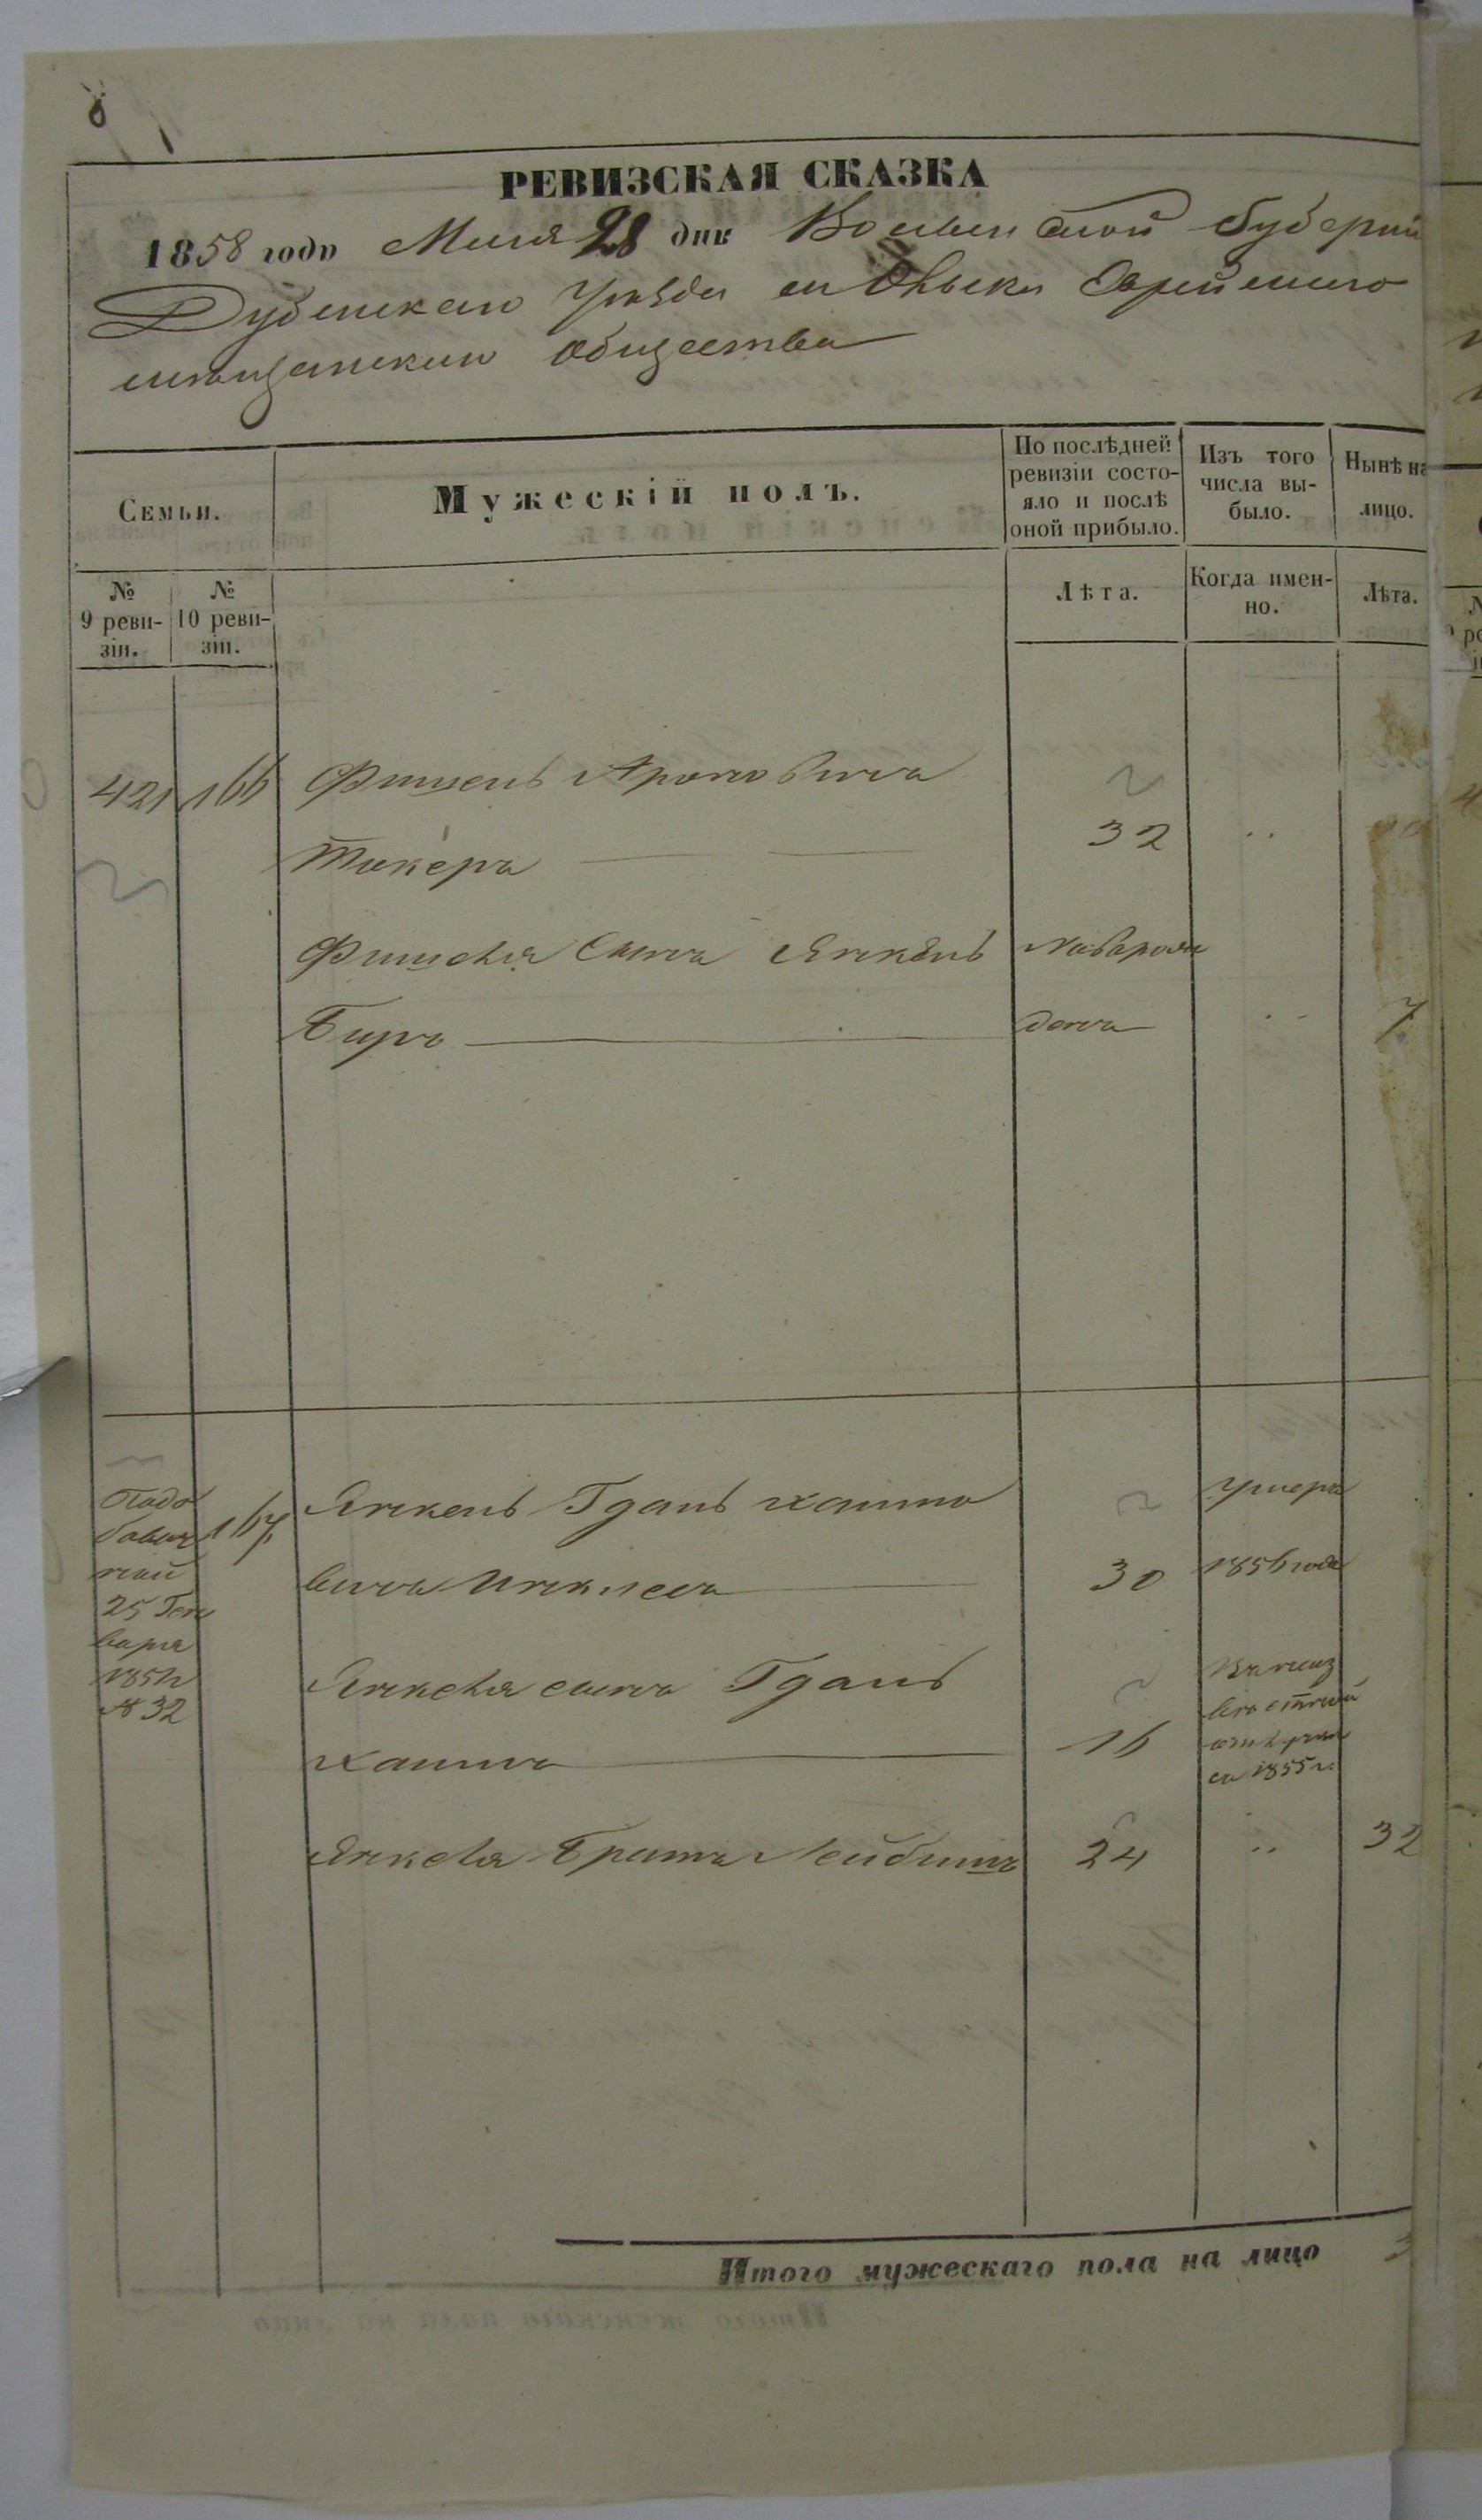 8
РЕВИЗСКАЯ СКАЗКА
1858 года Маия 28 дня Волынской Губернии
Дубенскаго уѣзда м Олыки Еврейскаго
мѣщанскаго общества
Семьи.
Мужескій полъ.
По послѣдней ревизіи состо-
яло и послѣ оной прибыло.
Изъ того числа вы-
было.
Нынѣ на
лицо.
№ 9 реви-
зіи.
№ 10 реви-
зіи.
Лѣта.
Когда имен-
но.
Лѣта.
421 166 Фишель Ароновичъ
Тикеръ 32 "
Фишеля Сынъ Янкель новорож
Биръ денъ " 7
167 Янкель Гдаль Хаимо Умеръ
вичъ 30 1856 года
25 Ген
варя
№ 32
Янкеля сынъ Гдаль
Хаимъ 16
1855 г.
Янкеля Братъ Лейбишъ 24 " 32
Итого мужескаго пола на лицо